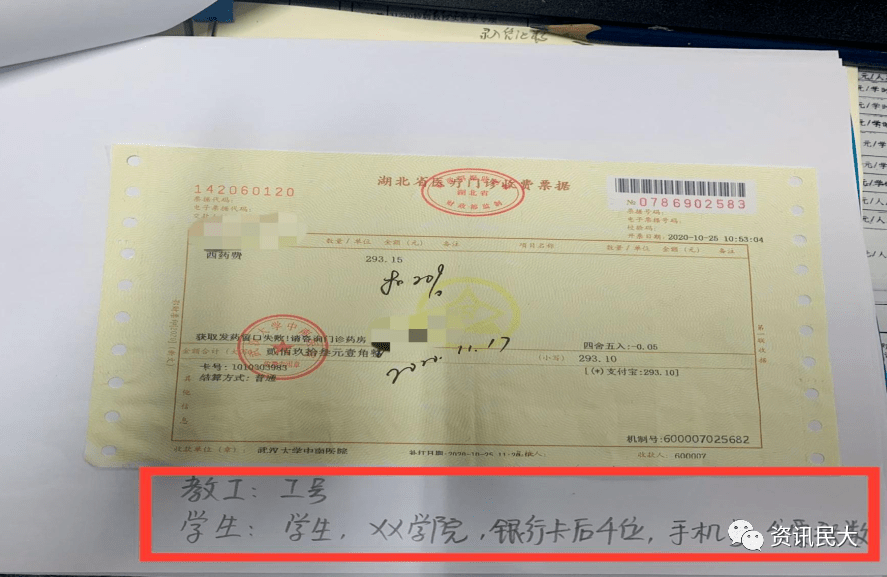 录入凭证
142060120
湖北省医疗门诊收费票据
湖北省
财政部监制
№0786902583
票据代码:
电子票据代码:
票据号码:
电子票据号码:
校验码:
开票日期:2020-10-25 10:53:04
数量/单位 金额(元) 备注 项目名称 数量/单位 金额(元) 备注
西药费 293.15
扣20%
获取发药窗口失败!请咨询门诊药房
四舍五入:-0.05
金额合计(大写) 贰佰玖拾叁元壹角整 (小写) 293.10
2020.11.17
卡号:1010303983
[(+)支付宝:293.10]
结算方式:普通
其他信息
机制号:600007025682
收款单位(章): 武汉大学中南医院 补打日期:2020-10-25 收款人: 600007
教工: 工号
学生: 学生, XX学院, 银行卡后4位, 手机
资讯民大